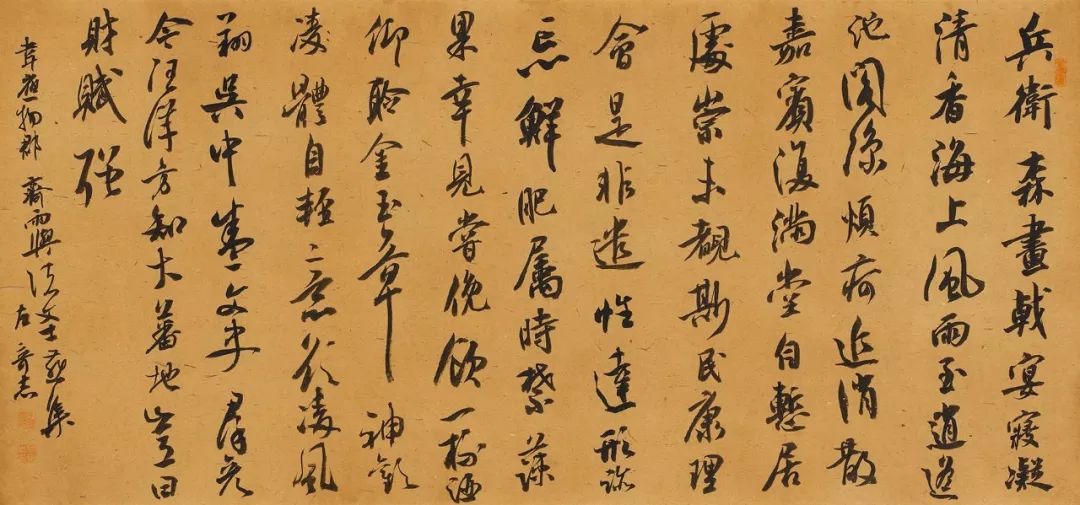 兵衛森畫戟宴寢凝
清香海上風雨至逍遙
池閣涼煩疴近消散
嘉賓復滿堂自慙居
處崇未覩斯民康理
會是非遣性達形跡
忘鮮肥屬時禁蔬
果幸見嘗俛飲一杯酒
仰聆金玉章神歡
凌體自輕意欲凌風
翔吳中盛文史羣彥
今汪洋方知大蕃地豈曰
財賦強
韋應物郡齋雨與諸文士燕集